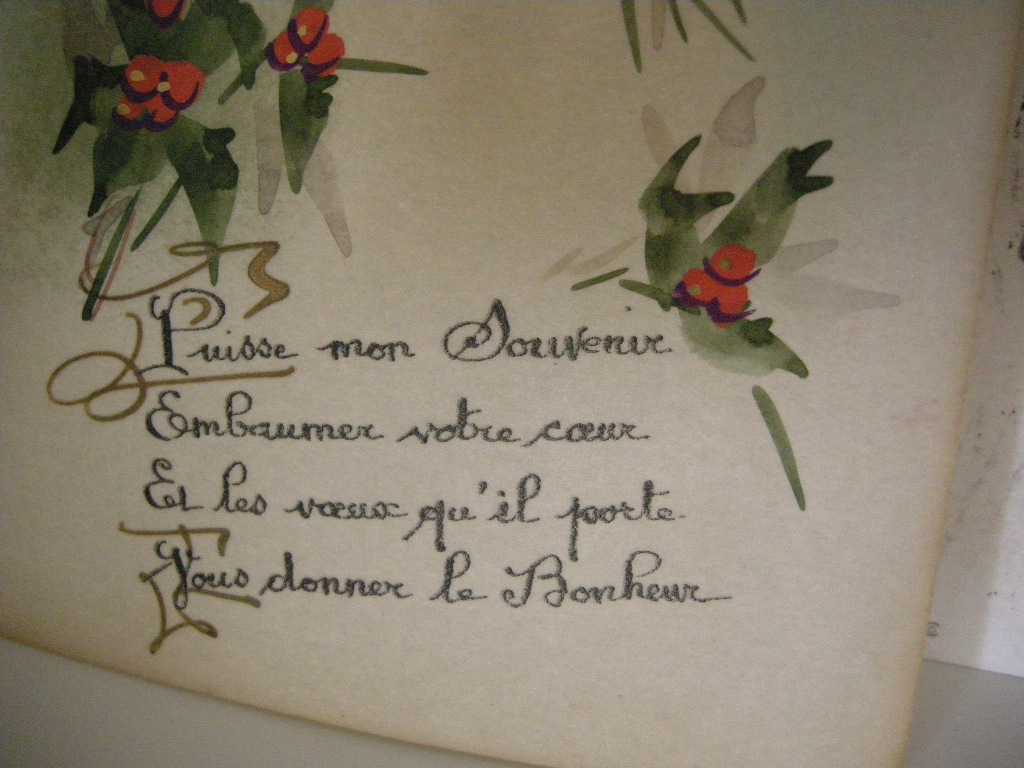 Puisse mon Souvenir
Embaumer votre cœur
Et les vœux qu'il porte
Vous donner le Bonheur